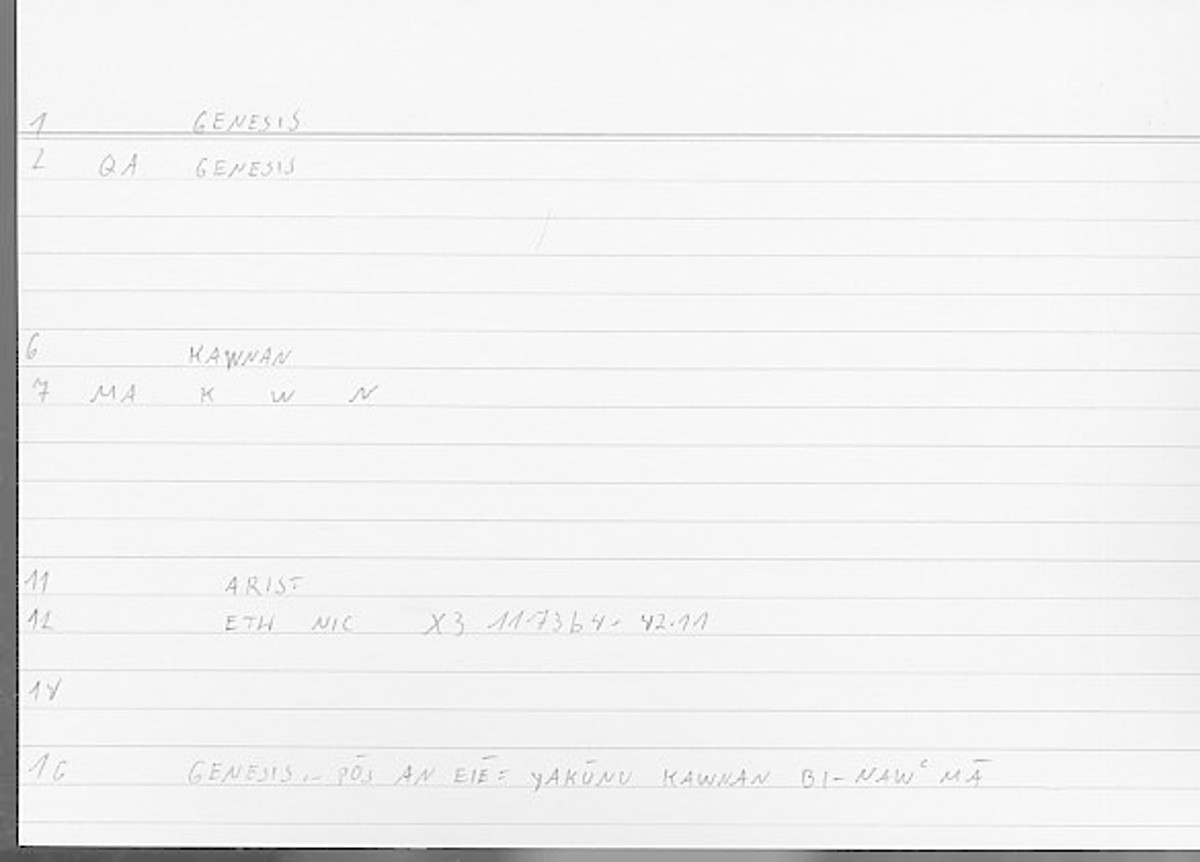 1 GENESIS
2 QA GENESIS
6 KAWNAN
7 MA K W N
11 ARIST
12 ETH NIC X3 1173b4- 42.11
14
16 GENESIS.- PŌS AN EIĒ = YAKŪNU KAWNAN BI-NAWᶜ MĀ